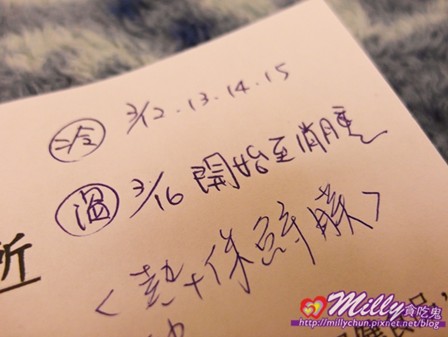 冷 3/12.13.14.15
溫 3/16 開始至消腫
所
<熱+保鮮膜>
Milly貪吃鬼
http://millychun.pixnet.net/blog